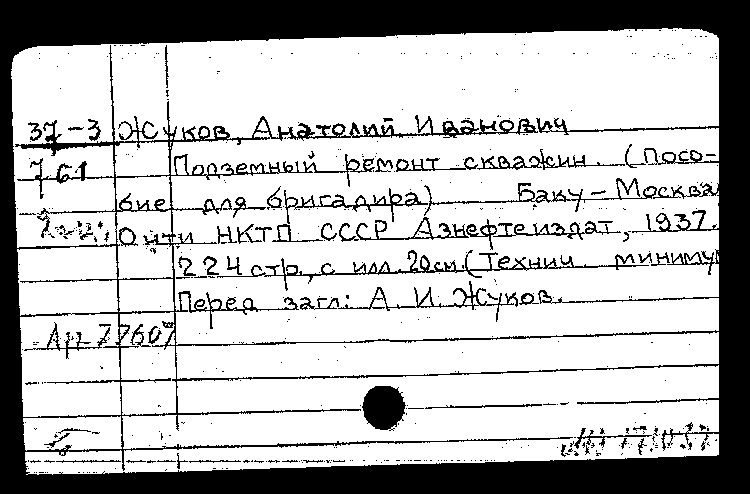 37-3 Жуков, Анатолий Иванович
761 Подземный ремонт скважин. (Посо-
бие для бригадира) Баку-Москва
Онти НКТП СССР Азнефтеиздат, 1937.
224 стр., с илл. 20 см. (Технич. миниму
Перед загл: А. И. Жуков.
Ар 77607